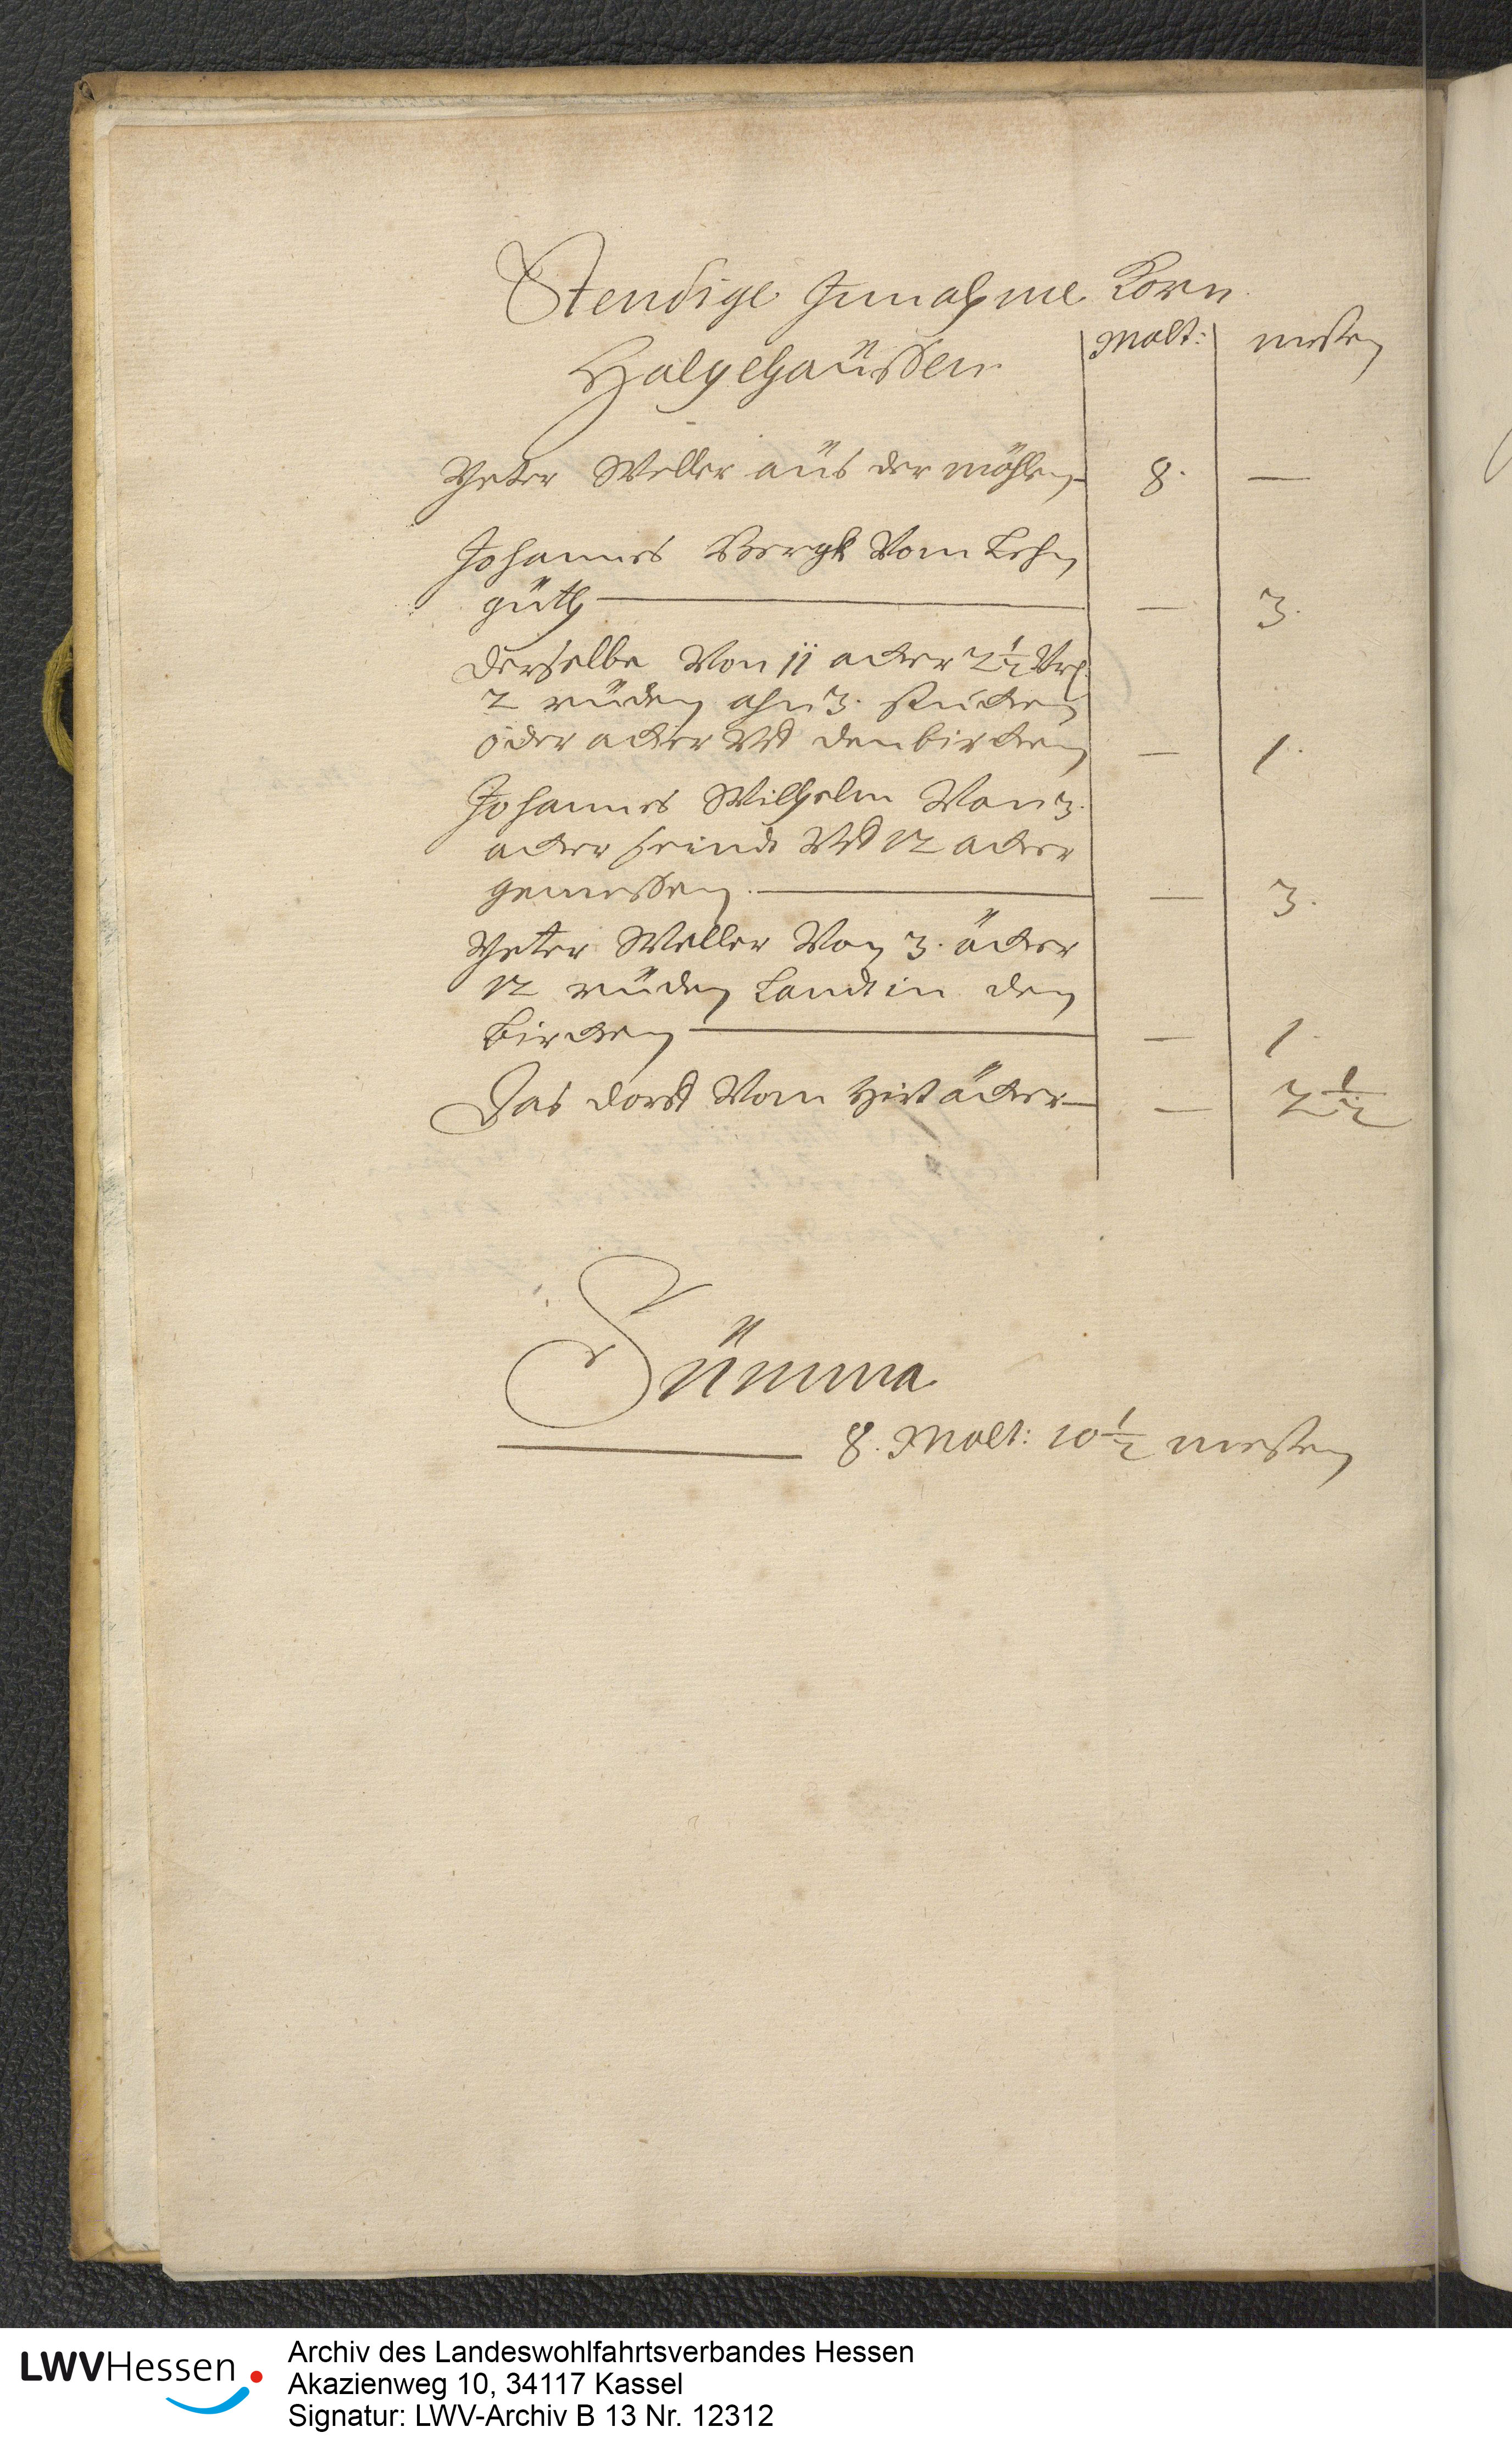 Stendige Innahme Korn
Halgehaüssen Malt: mesten
Peter Weller aüs der möhlen 8. —
Johannes Bergk Vom Lehn
güth — 3.
Derselbe Von 11 acker 2 1/2 Vrl.
2 rüden ahn 3. stücken
oder acker Vff den bircken — 1.
Johannes Wilhelm Von 3.
acker seind Vff 12 acker
gemessen — 3.
Peter Weller Von 3. äcker
12 rüden Landt in den
bircken — 1.
Das dorff Vom äcker — 2 1/2
Sümma
8. Malt: 10 1/2 mesten
LWVHessen
Archiv des Landeswohlfahrtsverbandes Hessen
Akazienweg 10, 34117 Kassel
Signatur: LWV-Archiv B 13 Nr. 12312